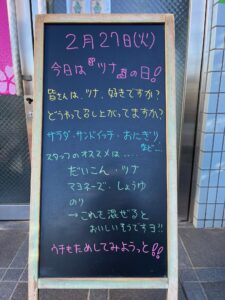 2月27日(火)
今日は『ツナ』の日!
皆さんは、ツナ、好きですか?
どうやって召し上がってますか?
サラダ・サンドイッチ・おにぎり
など…
スタッフのオススメは….
だいこん・ツナ
マヨネーズ・しょうゆ
のり
→これを混ぜると
おいしいそうですヨ!!
ウチもためしてみようっと!!